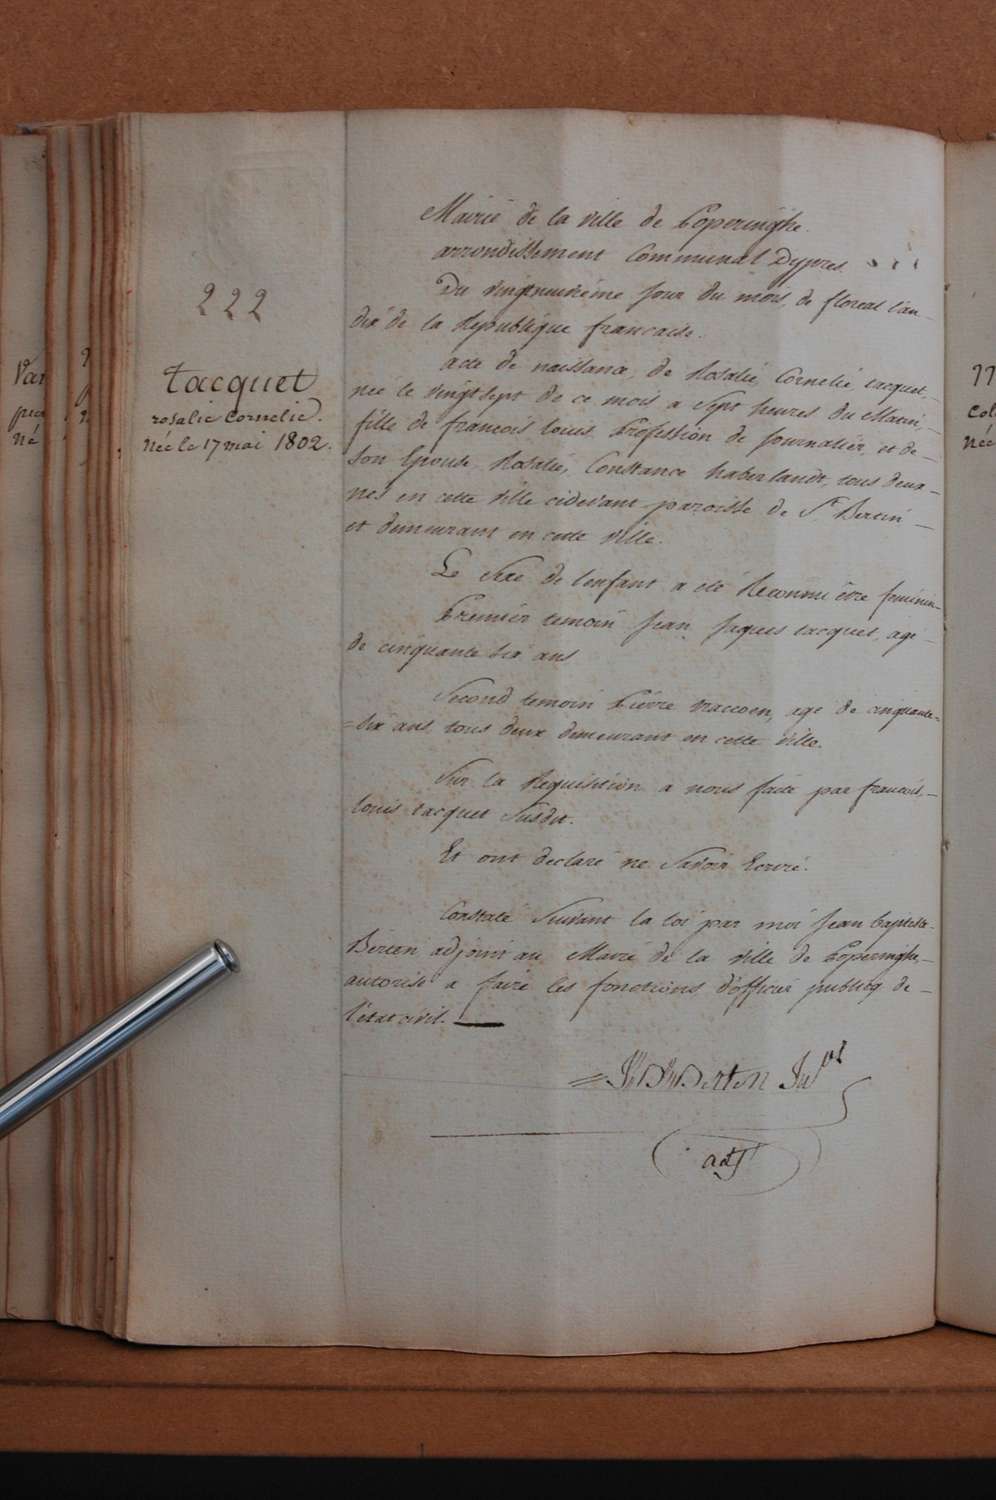 222
tacquet
rosalie cornelie.
Née le 17 mai 1802.
Mairie de la ville de Poperinghe.
arrondissement Communal Dypres.
Du vingtneuvieme jour du mois, de floreal l'an
dix de la Republique francaise.
acte de naissance, de Rosalie, Cornelie tacquet,
née le vingt sept de ce mois a Sept heures du Matin, —
fille de francois louis Profession de journalier, et de —
Son Epouse, Rosalie, Constance haberlandt, tous deux —
nes en cette ville cidevant paroisse de St Bertin —
et demeurant en cette ville.
Le Sexe de l'enfant a eté Reconnu être feminin —
Premier temoin Jean Jaques tacquet, agé —
de cinquante six ans
Second temoin Pierre age de cinquante =
= six ans tous deux demeurant en cette ville.
Sur la Requisition a nous faite par francois, —
louis tacquet Susdit.
Et ont declaré ne Savoir Ecrire.
Constaté Suivant la loi par moi Jean baptiste —
Berten adjoint au Maire de la ville de Poperinghe, —
autorisé a faire les fonctions d'officier publicq de —
l'état civil. —
Berten
adj
Van
Né
col
Née